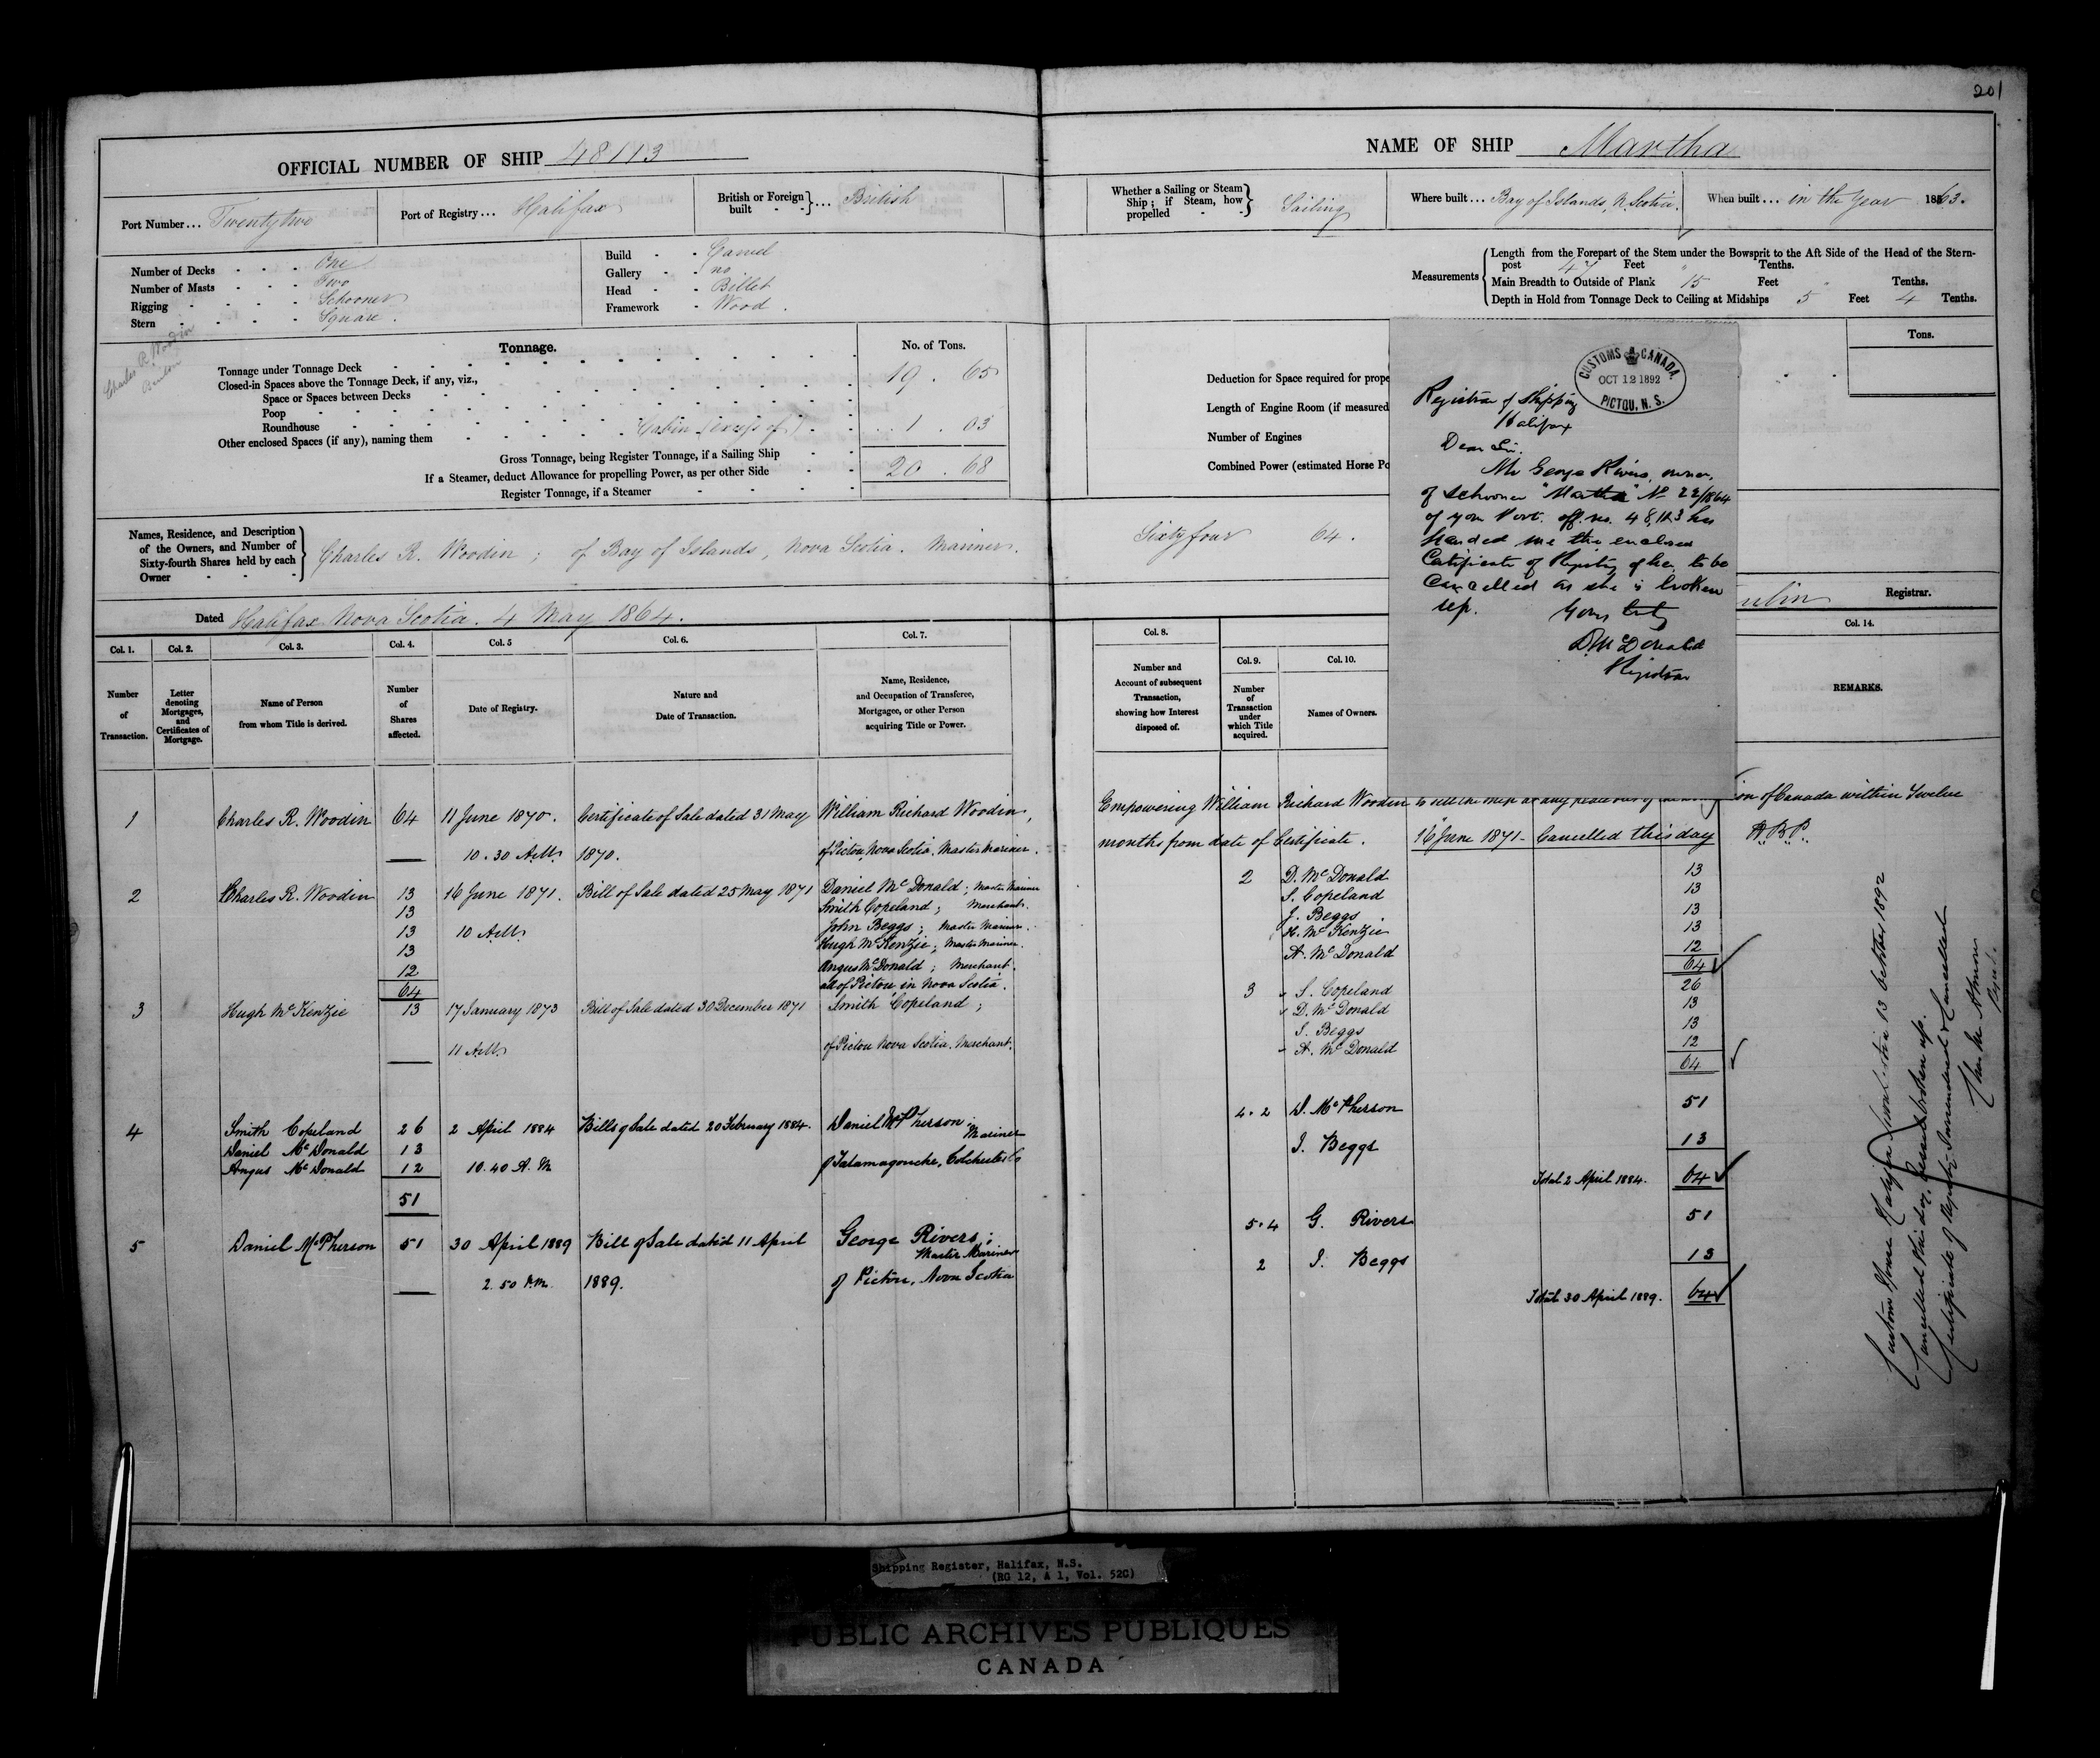 201
OFFICIAL NUMBER OF SHIP 48113
NAME OF SHIP Martha
Port Number... Twentytwo
Port of Registry... Halifax
British or Foreign built - - }... British
Whether a Sailing or Steam Ship; if Steam, how propelled - - } Sailing
Where built... Bay of Islands, N. Scotia.
When built... in the Year 1863.
Number of Decks - - - One
Number of Masts - - - Two
Rigging - - - - Schooner
Stern - - - - Square.
Build - - Carvel
Gallery - - no
Head - - Billet
Framework - Wood.
Measurements
Length from the Forepart of the Stem under the Bowsprit to the Aft Side of the Head of the Stern-
post 47 Feet " Tenths.
Main Breadth to Outside of Plank 15 Feet " Tenths.
Depth in Hold from Tonnage Deck to Ceiling at Midships 5 Feet 4 Tenths.
Charles R. Woodin
Tonnage.
No. of Tons.
Tonnage under Tonnage Deck 19 . 65
Closed-in Spaces above the Tonnage Deck, if any, viz.,
Space or Spaces between Decks
Poop
Roundhouse
Other enclosed Spaces (if any), naming them Cabin (excess of) 1 . 03
Gross Tonnage, being Register Tonnage, if a Sailing Ship 20 . 68
If a Steamer, deduct Allowance for propelling Power, as per other Side
Register Tonnage, if a Steamer
Tons.
Deduction for Space required for prope
Length of Engine Room (if measured
Number of Engines
Combined Power (estimated Horse Po
CUSTOMS CANADA.
OCT 12 1892
PICTOU, N. S.
Registrar of Shipping
Halifax
Dear Sir.
Mr George Rivers, owner,
of Schooner "Martha" No 22/1864
of your Port. off. no. 48,113 has
handed me the enclosed
Certificate of Registry of her, to be
Cancelled as she is broken
up.
Yours truly
D. McDonald
Registrar
Names, Residence, and Description
of the Owners, and Number of
Sixty-fourth Shares held by each
Owner - - -
Charles R. Woodin ; of Bay of Islands, Nova Scotia. Mariner.
Sixty four 64.
Dated Halifax Nova Scotia. 4 May 1864.
Registrar.
Col. 1.
Number of Transaction.
Col. 2.
Letter denoting Mortgages, and Certificates of Mortgage.
Col. 3.
Name of Person from whom Title is derived.
Col. 4.
Number of Shares affected.
Col. 5
Date of Registry.
Col. 6.
Nature and Date of Transaction.
Col. 7.
Name, Residence, and Occupation of Transferee, Mortgagee, or other Person acquiring Title or Power.
Col. 8.
Number and Account of subsequent Transaction, showing how Interest disposed of.
Col. 9.
Number of Transaction under which Title acquired.
Col. 10.
Names of Owners.
Col. 14.
REMARKS.
1 Charles R. Woodin 64 11 June 1870. Certificate of Sale dated 31 May William Richard Woodin,
10.30 AM 1870. of Pictou, Nova Scotia. Master Mariner.
Empowering William Richard Woodin to sell the ship at any place out of the ion of Canada within Twelve
months from date of Certificate. 16 June 1871 - Cancelled this day
2 Charles R. Woodin 13 16 June 1871. Bill of Sale dated 25 May 1871 Daniel McDonald ; Master Mariner
13 Smith Copeland ; Merchant.
13 10 AM John Beggs ; Master Mariner.
13 Hugh McKenzie ; Master Mariner.
12 Angus McDonald ; Merchant.
64 all of Pictou in Nova Scotia.
2 D. McDonald 13
S. Copeland 13
J. Beggs 13
H. McKenzie 13
A. McDonald 12
64
3 Hugh McKenzie 13 17 January 1873 Bill of Sale dated 30 December 1871 Smith Copeland ;
11 AM of Pictou Nova Scotia. Merchant.
3 S. Copeland 26
D. McDonald 13
J. Beggs 13
A. McDonald 12
64
4 Smith Copeland 26 2 April 1884 Bills of Sale dated 20 February 1884. Daniel McPherson ; Mariner
Daniel McDonald 13
Angus McDonald 12 10.40 A.M of Tatamagouche, Colchester Co
51
4.2 D. McPherson 51
J. Beggs 13
Total 2 April 1884. 64
5 Daniel McPherson 51 30 April 1889 Bill of Sale dated 11 April George Rivers ; Master Mariner
2.50 P.M. 1889. of Pictou, Nova Scotia
5.4 G. Rivers 51
2 J. Beggs 13
Total 30 April 1889. 64
Customs House Halifax Nova Scotia 13 October 1892
Cancelled this day. Vessel broken up.
Certificate of Registry Surrendered & Cancelled
Shipping Register, Halifax, N.S.
(RG 12, A 1, Vol. 52C)
PUBLIC ARCHIVES PUBLIQUES
CANADA